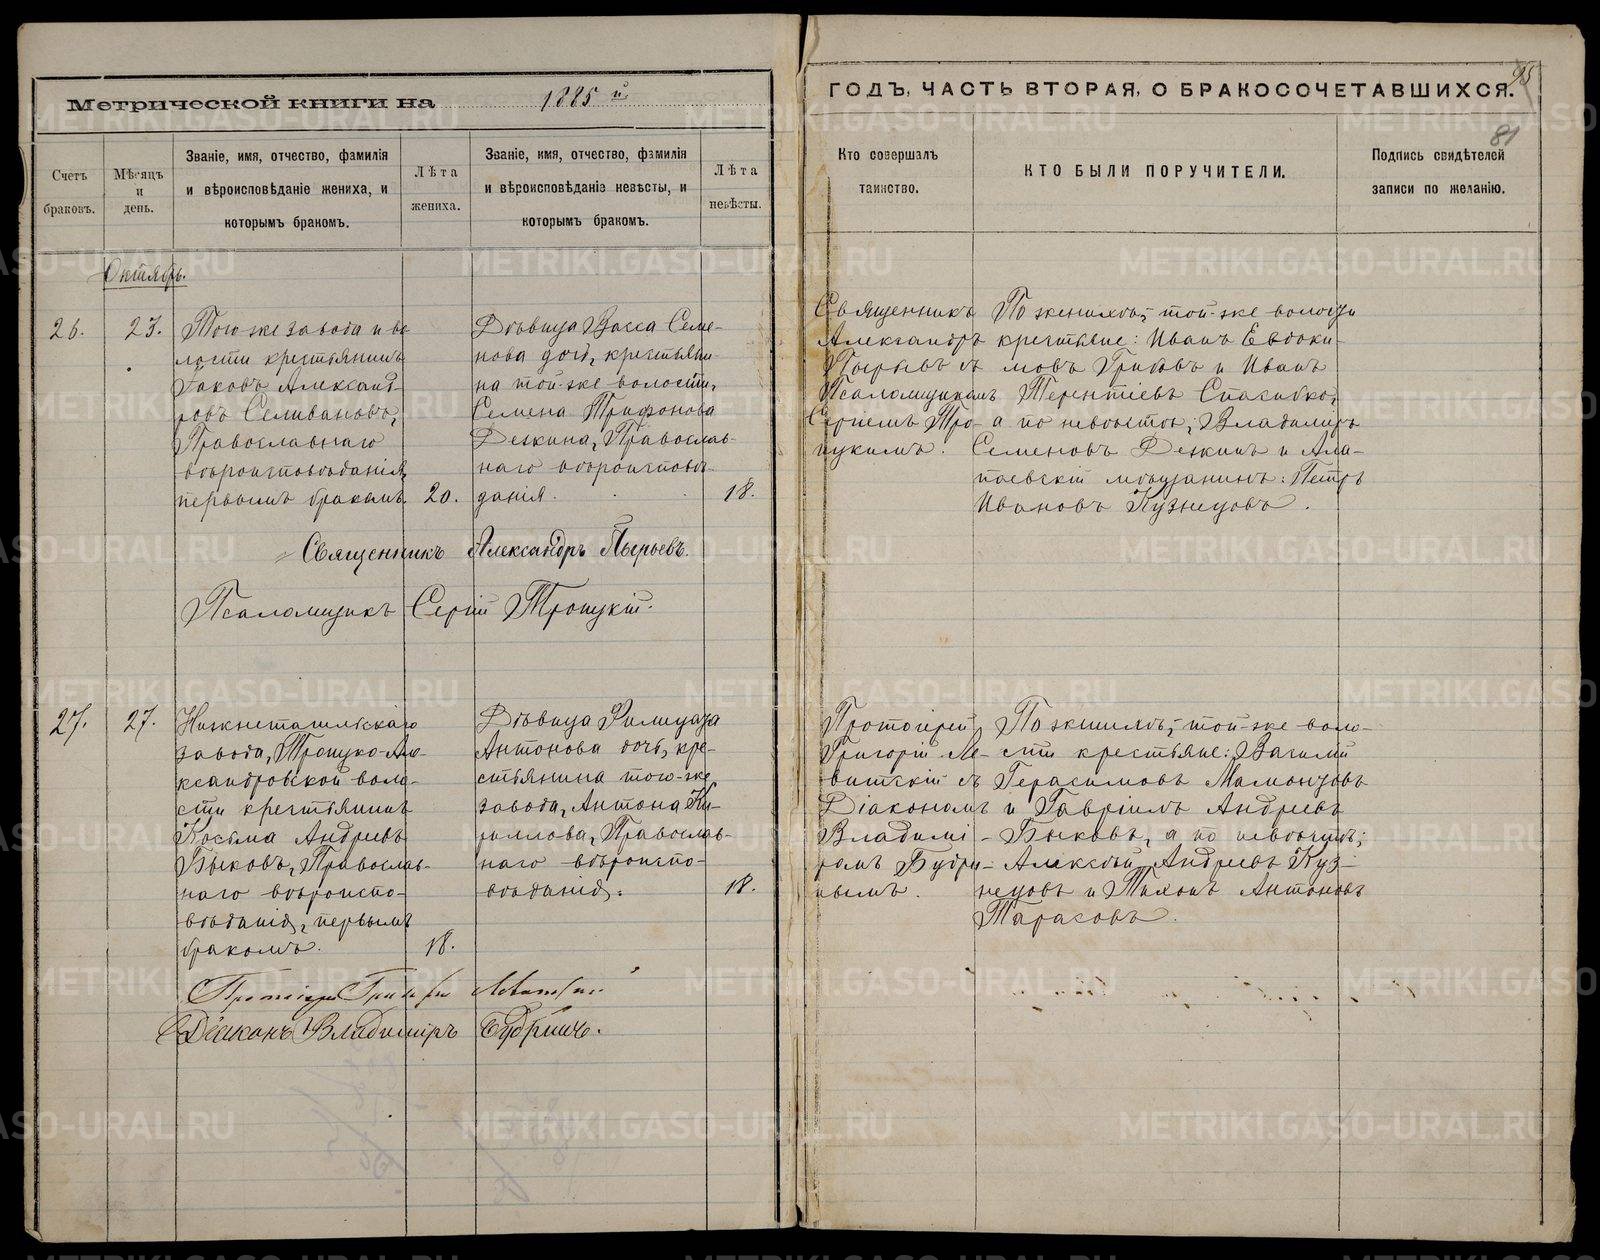 Метрической книги на 1885 й
ГОДЪ, ЧАСТЬ ВТОРАЯ, О БРАКОСОЧЕТАВШИХСЯ.
95
81
Счетъ
браковъ.
Мѣсяцъ
и
день.
Званіе, имя, отчество, фамилія
и вѣроисповѣданіе жениха, и
которымъ бракомъ.
Лѣта
жениха.
Званіе, имя, отчество, фамилія
и вѣроисповѣданіе невѣсты, и
которымъ бракомъ.
Лѣта
невѣсты.
Кто совершалъ
таинство.
КТО БЫЛИ ПОРУЧИТЕЛИ.
Подпись свидѣтелей
записи по желанію.
Октябрь.
26.
23.
Того же завода и во-
лости крестьянинъ
Іаковъ Александ-
ровъ Селивановъ,
Православнаго
вѣроисповѣданія,
первымъ бракомъ.
20.
Дѣвица Васса Семе-
нова дочь, крестьяни-
на той-же волости,
Семена Трифонова
Дежкина, Православ-
наго вѣроисповѣ-
данія.
18.
Священникъ
Александръ
Пырьевъ съ
Псаломщикомъ
Сергіемъ Тро-
ицкимъ.
По женихѣ, той-же волости
крестьяне: Иванъ Евдоки-
мовъ Грибовъ и Иванъ
Терентіевъ Спасибко,
а по невѣстѣ, Владиміръ
Семеновъ Дежкинъ и Ала-
паевскій мѣщанинъ: Петръ
Ивановъ Кузнецовъ.
Священникъ Александръ Пырьевъ.
Псаломщикъ Сергій Троицкій.
27.
27.
Нижнетагильскаго
завода, Троицко-Але-
ксандровской воло-
сти крестьянинъ
Косьма Андреевъ
Быковъ, Православ-
наго вѣроиспо-
вѣданія, первымъ
бракомъ.
18.
Дѣвица Филицата
Антонова дочь, кре-
стьянина того-же
завода, Антона Ки-
риллова, Православ-
наго вѣроиспо-
вѣданія.
18.
Протоіерей
Григорій Ле-
витскій съ
Діакономъ
Владимі-
ромъ Будри-
нымъ.
По женихѣ, той-же воло-
сти крестьяне: Василій
Герасимовъ Мамонтовъ
и Гавріилъ Андреевъ
Быковъ, а по невѣстѣ;
Алексѣй Андреевъ Куз-
нецовъ и Тихонъ Антоновъ
Тарасовъ.
Протоіерей Григорій Левитскій
Діаконъ Владиміръ Будринъ.
METRIKI.GASO-URAL.RU